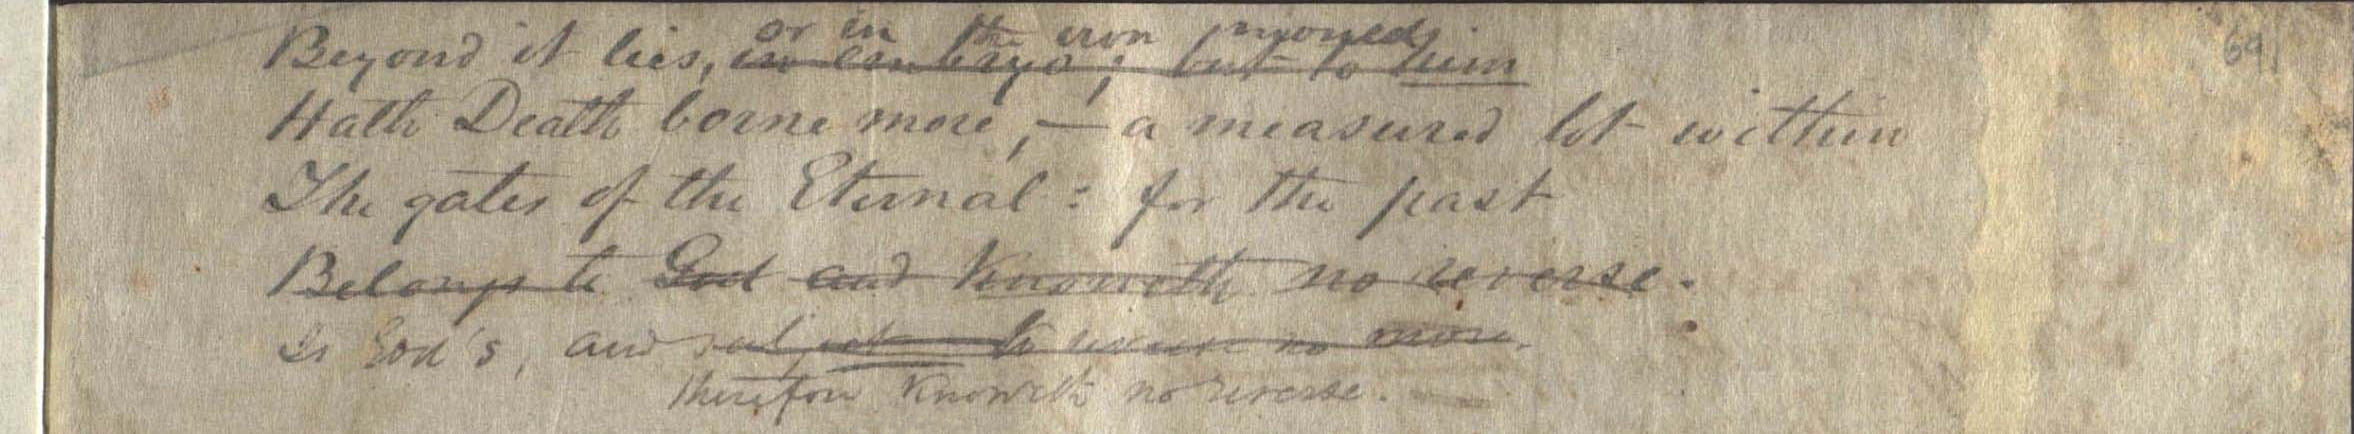 69
or in the iron
Beyond it lies, in embryo; but to him
Hath Death borne more,— a measured lot within
The gates of the Eternal: for the past
Belongs to God and knoweth no reverse.
Is God's, and subject to no more.
therefore knoweth no reverse.